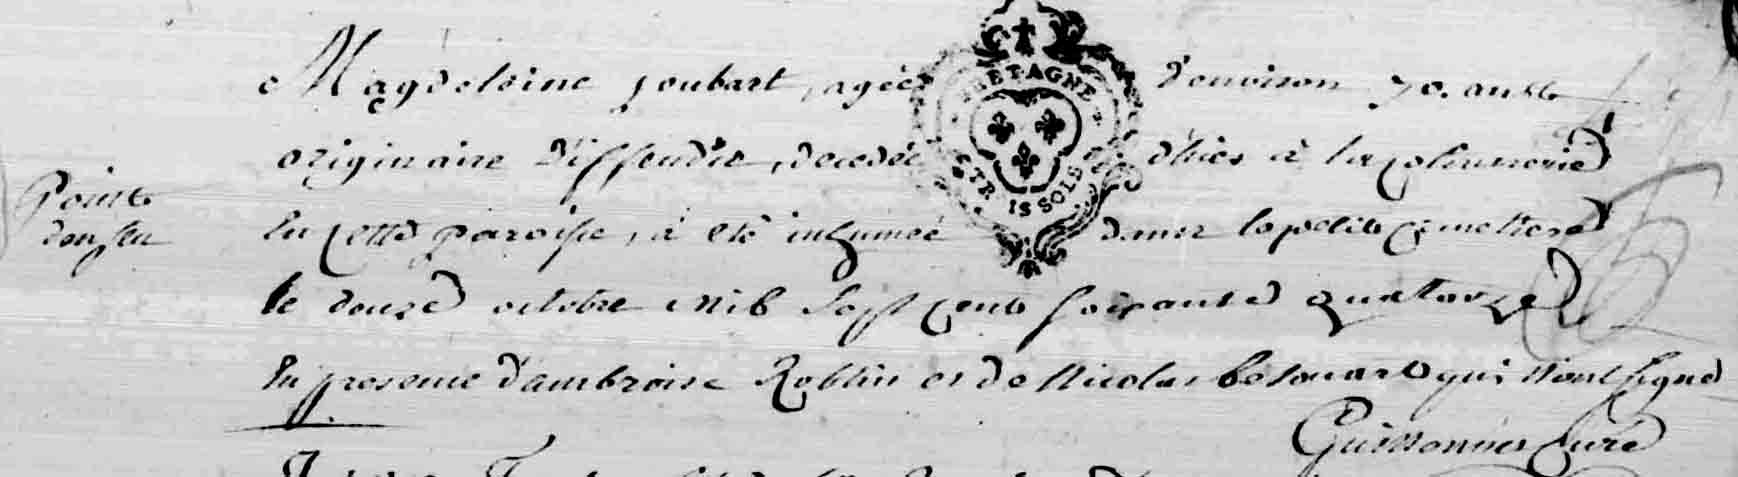 Magdeleine joubart, agée d'environ 70. ans
originaire d'iffendic, decedée d'hier à la
Point
d'enfeu
En cette paroisse, a eté inhumée dans le petit cimetiere
le douze octobre mil sept cent soixante quatorze
En presence d'ambroise Roblin et de Nicolas qui n'ont signé
curé
BRETAGNE
ISSOLS